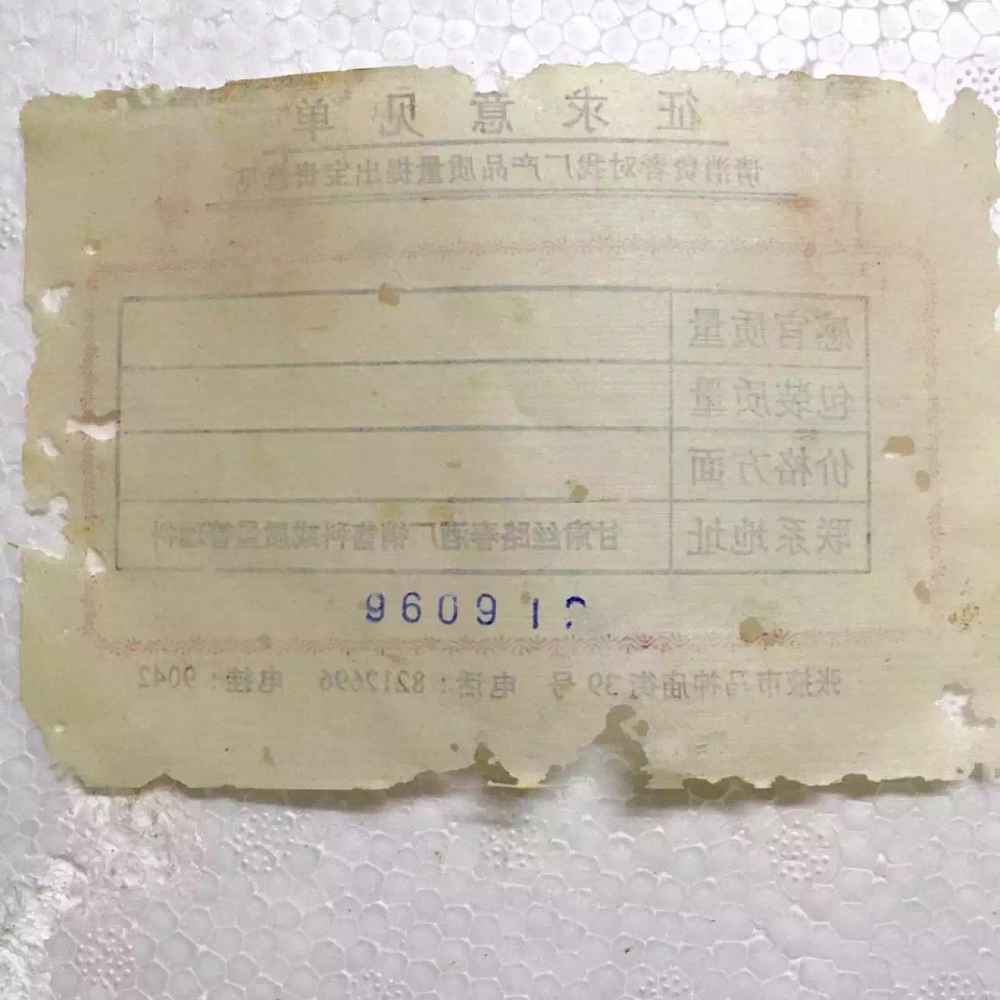 征求意见单
请消费者对我厂产品质量提出宝贵意见
感官质量
包装质量
价格方面
联系地址 甘肃丝路春酒厂销售科或质量管理科
960912
张掖市马神庙街39号 电话：8212696 电挂：9042